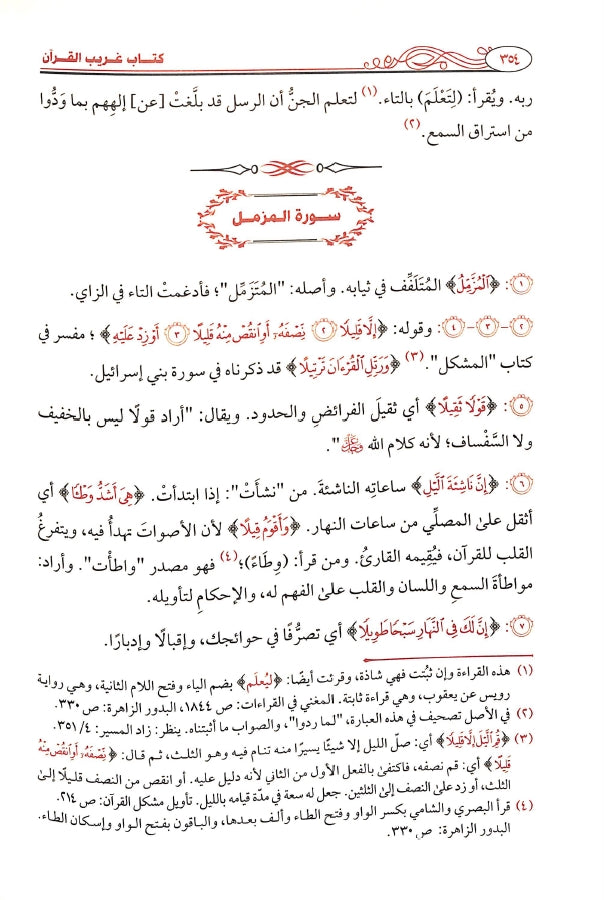 ٣٥٤ كتاب غريب القرآن
ربه. ويُقرأ: (لِتَعْلَمَ) بالتاء.(١) لتعلم الجنُّ أن الرسل قد بلَّغتْ [عن] إلهِهم بما وَدُّوا
من استراق السمع.(٢)
سورة المزمل
١: ﴿الْمُزَّمِّلُ﴾ المُتَلَفِّف في ثيابه. وأصله: "المُتَزَمِّل"؛ فأدغمتْ التاء في الزاي.
٢-٣-٤: وقوله: ﴿إِلَّا قَلِيلًا ٢ نِّصْفَهُۥٓ أَوِ انقُصْ مِنْهُ قَلِيلًا ٣ أَوْ زِدْ عَلَيْهِ﴾؛ مفسر في
كتاب "المشكل".(٣) ﴿وَرَتِّلِ الْقُرْءَانَ تَرْتِيلًا﴾ قد ذكرناه في سورة بني إسرائيل.
٥: ﴿قَوْلًا ثَقِيلًا﴾ أي ثقيلَ الفرائضِ والحدود. ويقال: "أراد قولًا ليس بالخفيف
ولا السَّفْساف؛ لأنه كلام الله ﷻ".
٦: ﴿إِنَّ نَاشِئَةَ الَّيْلِ﴾ ساعاتِه الناشئةَ. من "نشأتْ": إذا ابتدأتْ. ﴿هِىَ أَشَدُّ وَطْـًٔا﴾ أي
أثقل علىٰ المصلِّي من ساعات النهار. ﴿وَأَقْوَمُ قِيلًا﴾ لأن الأصواتَ تهدأُ فيه، ويتفرغُ
القلب للقرآن، فيُقِيمه القارئُ. ومن قرأ: (وِطَاءً)؛(٤) فهو مصدر "واطأت". وأراد:
مواطأةَ السمعِ واللسان والقلب علىٰ الفهم له، والإحكامِ لتأويله.
٧: ﴿إِنَّ لَكَ فِى النَّهَارِ سَبْحًا طَوِيلًا﴾ أي تصرُّفًا في حوائجك، وإقبالًا وإدبارًا.
(١) هذه القراءة وإن ثبتت فهي شاذة، وقرئت أيضًا: ﴿لِيُعلَم﴾ بضم الياء وفتح اللام الثانية، وهي رواية
رويس عن يعقوب، وهي قراءة ثابتة. المغني في القراءات: ص ١٨٤٤، البدور الزاهرة: ص ٣٣٠.
(٢) في الأصل تصحيف في هذه العبارة، "لما ردوا"، والصواب ما أثبتناه. ينظر: زاد المسير: ٣٥١/٤.
(٣) ﴿قُمِ الَّيْلَ إِلَّا قَلِيلًا﴾ أي: صلّ الليل إلا شيئًا يسيرًا منه تنام فيه وهو الثلث، ثم قال: ﴿نِّصْفَهُۥٓ أَوِ انقُصْ مِنْهُ
قَلِيلًا﴾ أي: قم نصفه، فاكتفىٰ بالفعل الأول من الثاني لأنه دليل عليه. أو انقص من النصف قليلًا إلىٰ
الثلث، أو زد علىٰ النصف إلىٰ الثلثين. جعل له سعة في مدّة قيامه بالليل. تأويل مشكل القرآن: ص ٢١٤.
(٤) قرأ البصري والشامي بكسر الواو وفتح الطاء وألف بعدها، والباقون بفتح الواو وإسكان الطاء.
البدور الزاهرة: ص ٣٣٠.